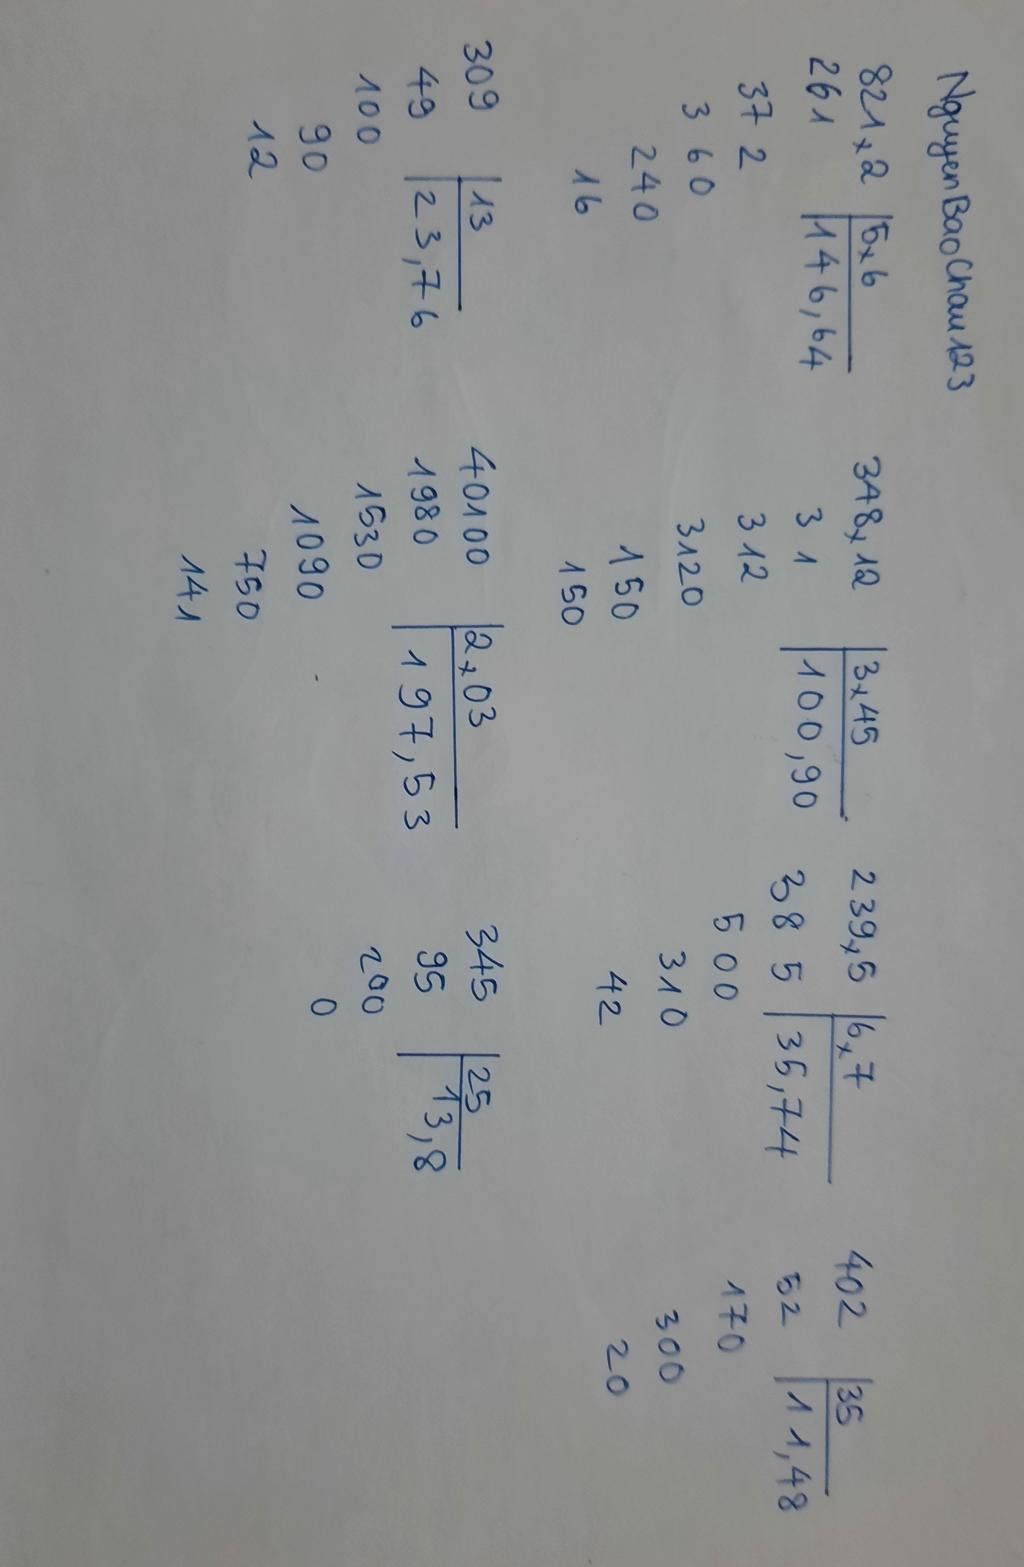 NguyenBaoChau123
821,2 5,6
261 146,64
37 2
3 60
240
16
348,12 3,45
3 1 100,90
312
3120
150
150
239,5 6,7
38 5 35,74
5 00
310
42
402 35
52 11,48
170
300
20
309 13
49 23,76
100
90
12
40100 2,03
1980 197,53
1530
1090
750
141
345 25
95 13,8
200
0